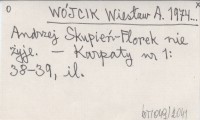 WÓJCIK Wiesław A. 1974...
Andrzej Skupień-Florek nie
żyje. — Karpaty nr 1:
38-39, il.